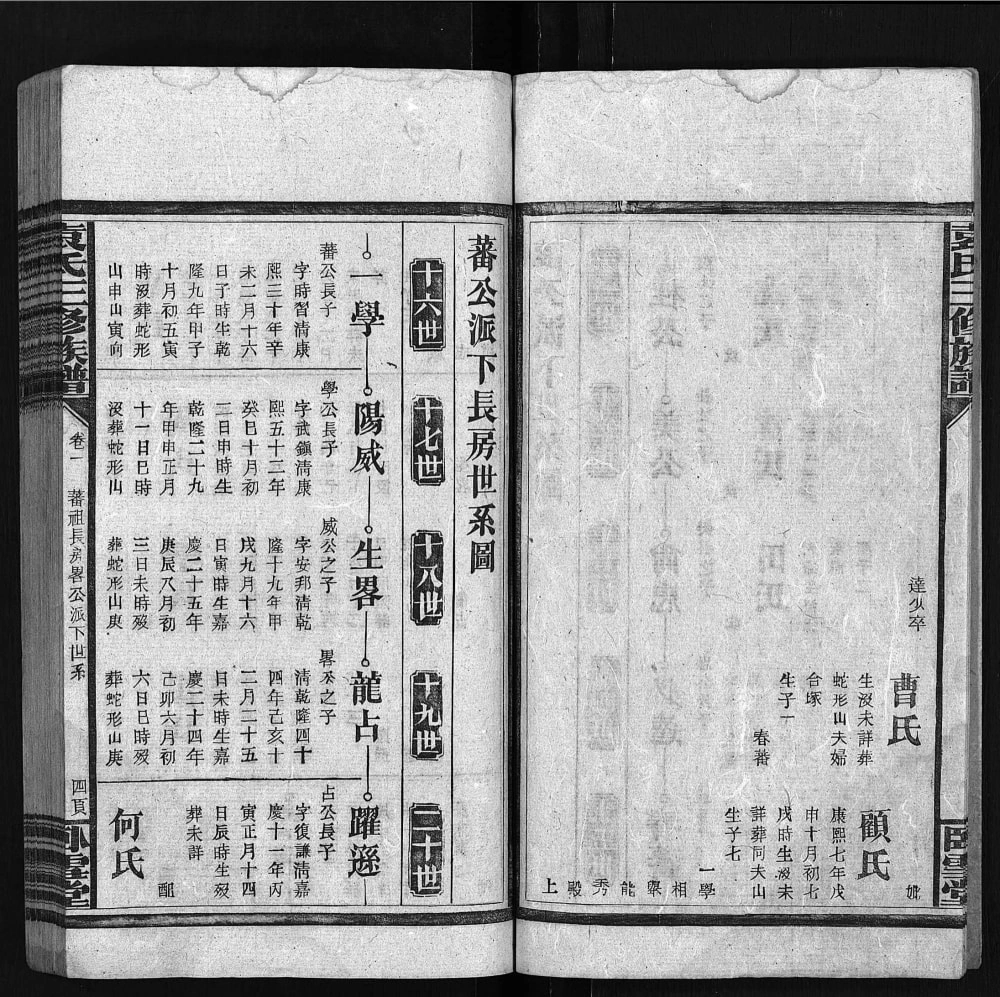 達少卒
曹氏
生沒未詳葬
蛇形山夫婦
合塚
生子一
春蕃
妣
顧氏
康熙七年戊
申十月初七
戌時生沒未
詳葬同夫山
生子七
一學
相
舉
能
秀
殿
上
蕃公派下長房世系圖
十六世
十七世
十八世
十九世
二十世
一學
陽威
生畧
龍占
躍遜
蕃公長子
字時習清康
熙三十年辛
未二月十六
日子時生乾
隆九年甲子
十月初五寅
時沒葬蛇形
山申山寅向
學公長子
字武鎮清康
熙五十三年
癸巳十月初
三日申時生
乾隆二十九
年甲申正月
十一日巳時
沒葬蛇形山
威公之子
字安邦清乾
隆十九年甲
戌九月十六
日寅時生嘉
慶二十五年
庚辰八月初
三日未時歿
葬蛇形山庚
畧公之子
清乾隆四十
四年己亥十
二月二十五
日未時生嘉
慶二十四年
己卯六月初
六日巳時歿
葬蛇形山庚
占公長子
字復謙清嘉
慶十一年丙
寅正月十四
日辰時生歿
葬未詳
配
何氏
袁氏三修族譜
卷一
蕃祖長房畧公派下世系
四頁
臥雲堂